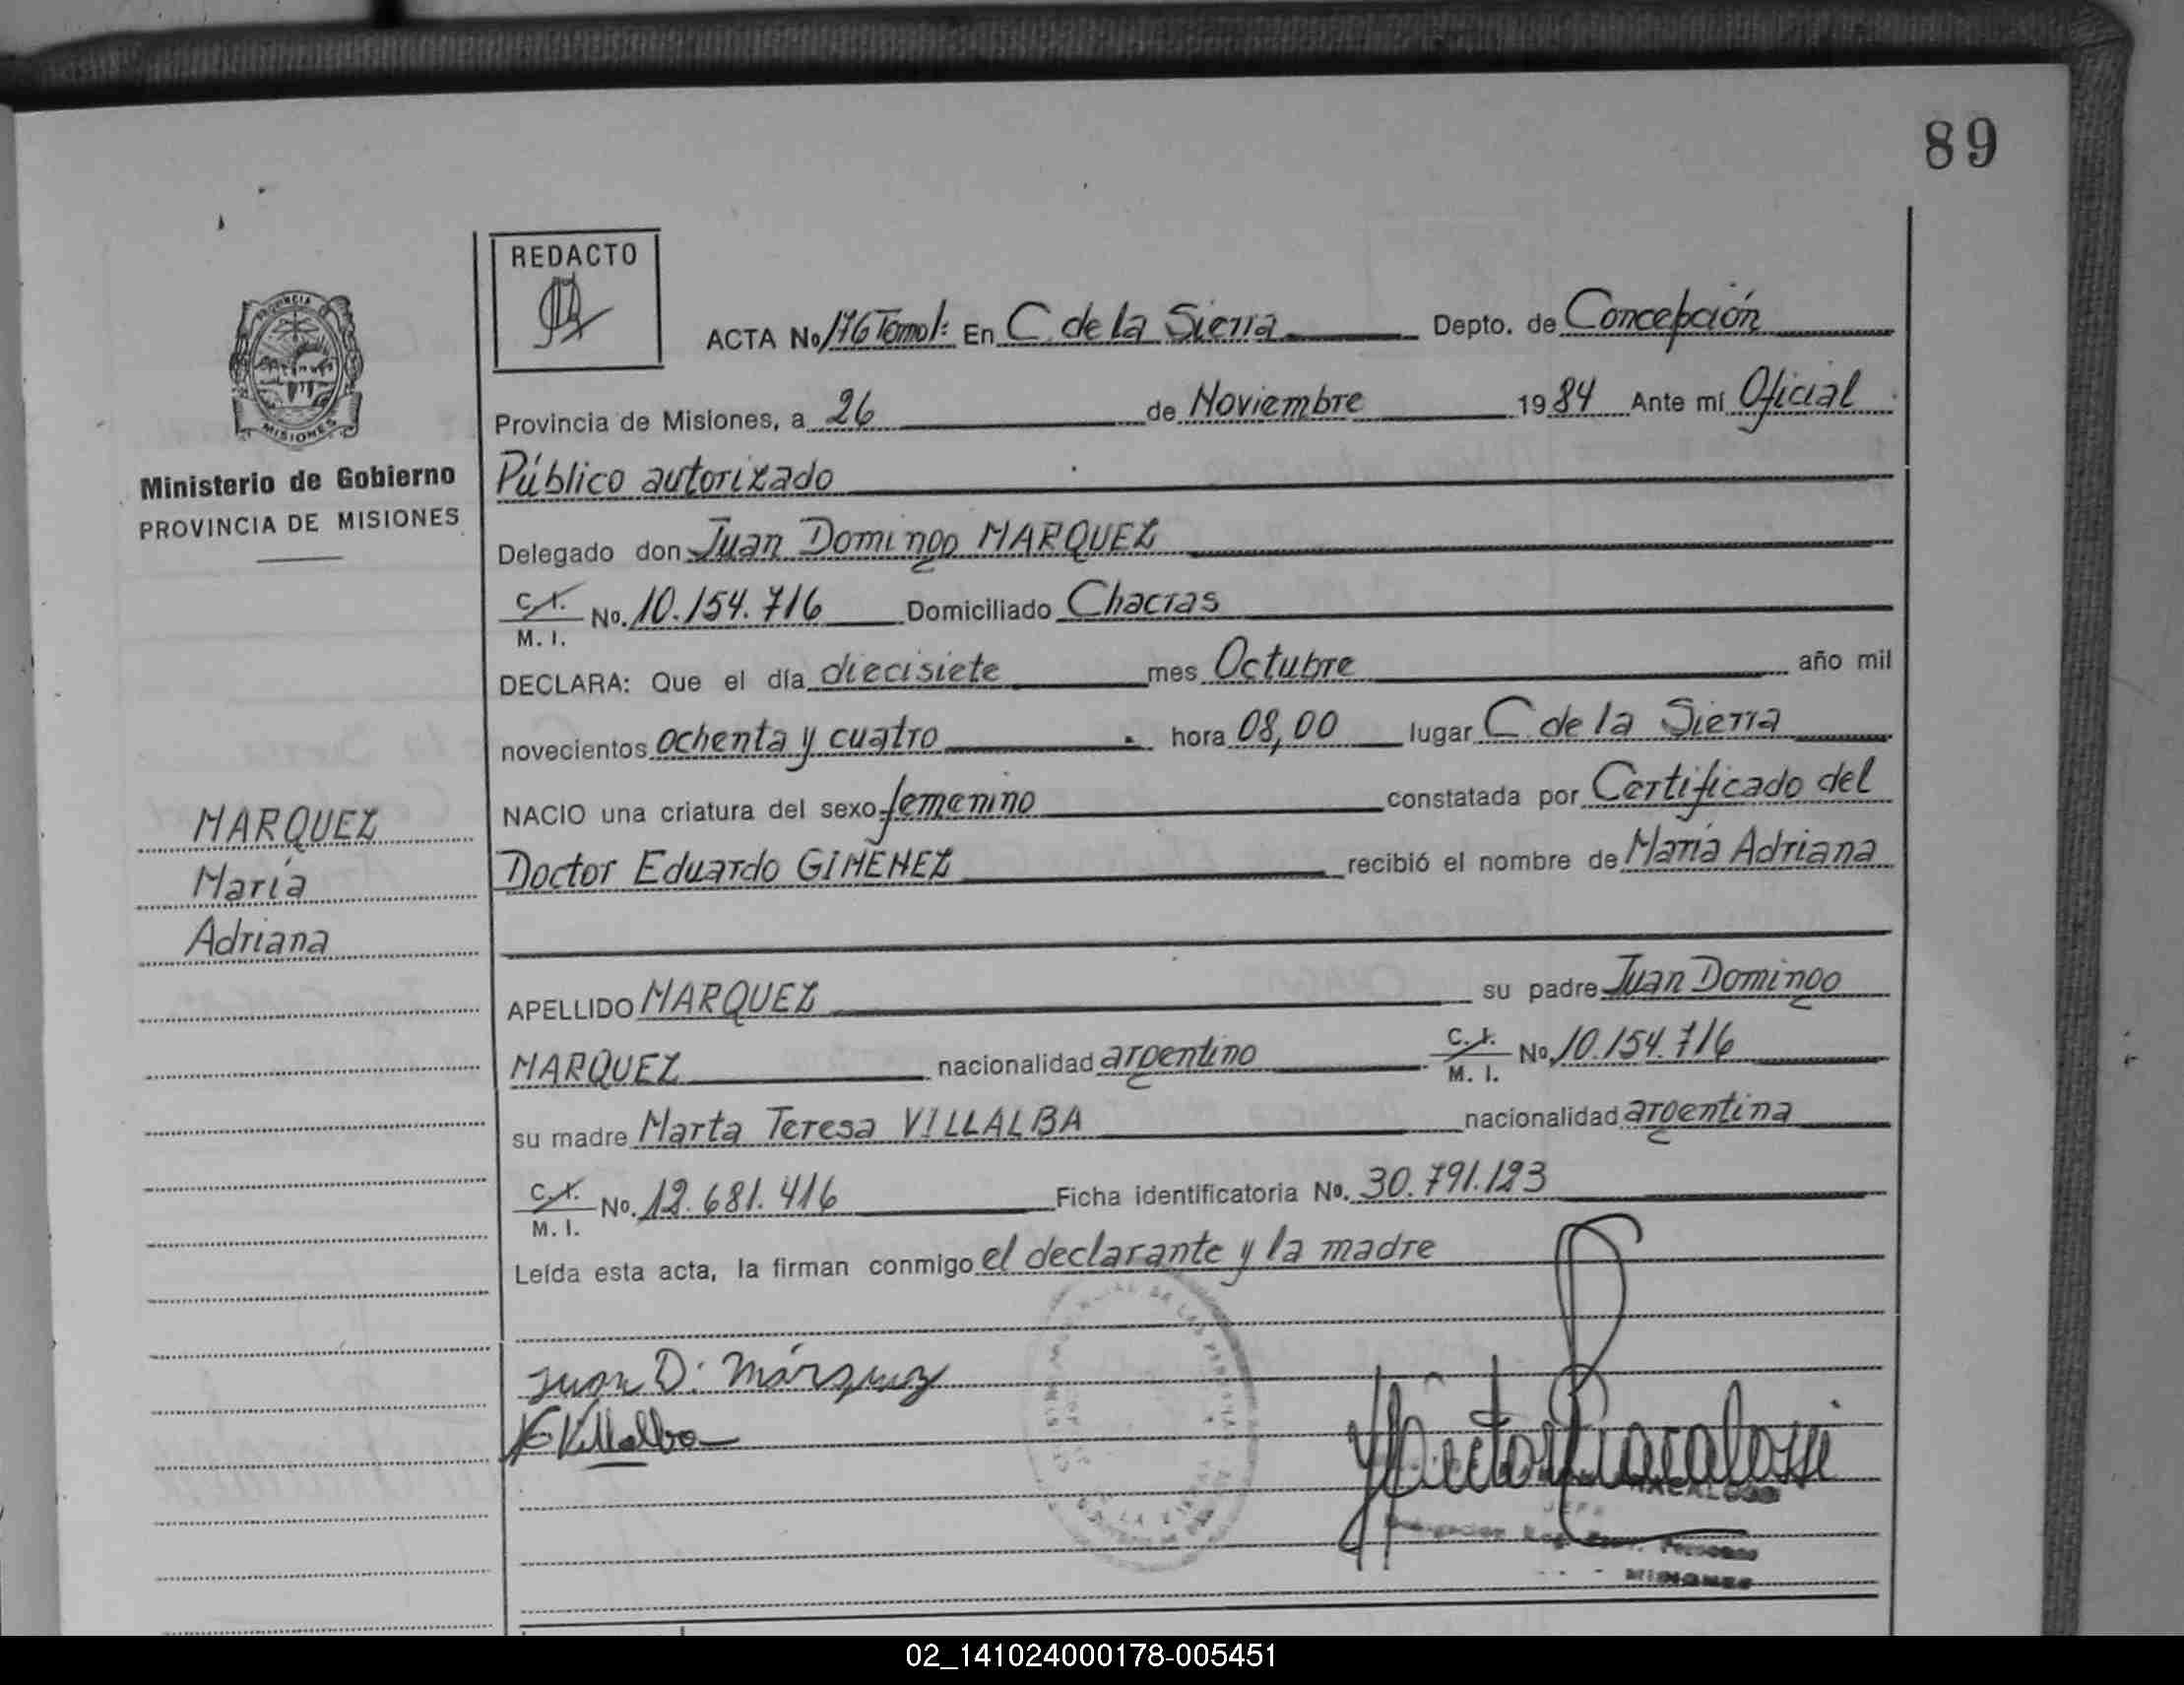 89
REDACTO
ACTA No 176 Tomo I: En C. de la Sierra Depto. de Concepción
Provincia de Misiones, a 26 de Noviembre 1984 Ante mí Oficial
Ministerio de Gobierno
PROVINCIA DE MISIONES
Público autorizado
Delegado don Juan Domingo MARQUEZ
C.I. M. I. No. 10.154.716 Domiciliado Chacras
DECLARA: Que el día diecisiete mes Octubre año mil
novecientos ochenta y cuatro hora 08,00 lugar C. de la Sierra
MARQUEZ
María
Adriana
NACIO una criatura del sexo femenino constatada por Certificado del
Doctor Eduardo GIMENEZ recibió el nombre de María Adriana
APELLIDO MARQUEZ su padre Juan Domingo
MARQUEZ nacionalidad argentino C.I. M. I. No 10.154.716
su madre Marta Teresa VILLALBA nacionalidad argentina
C.I. M. I. No. 12.681.416 Ficha identificatoria No. 30.791.123
Leída esta acta, la firman conmigo el declarante y la madre
Juan D. Márquez
Villalba
MISIONES
02_141024000178-005451